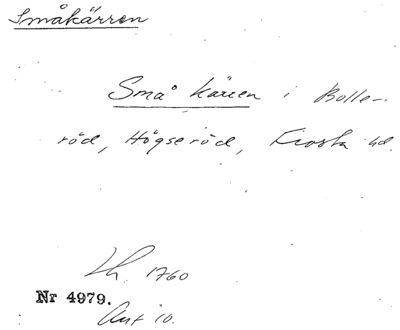 Småkärren
Små Kärren i Bolle-
röd, Högseröd, Frosta hd.
Lh. 1760
Nr 4979.
Ant 10.